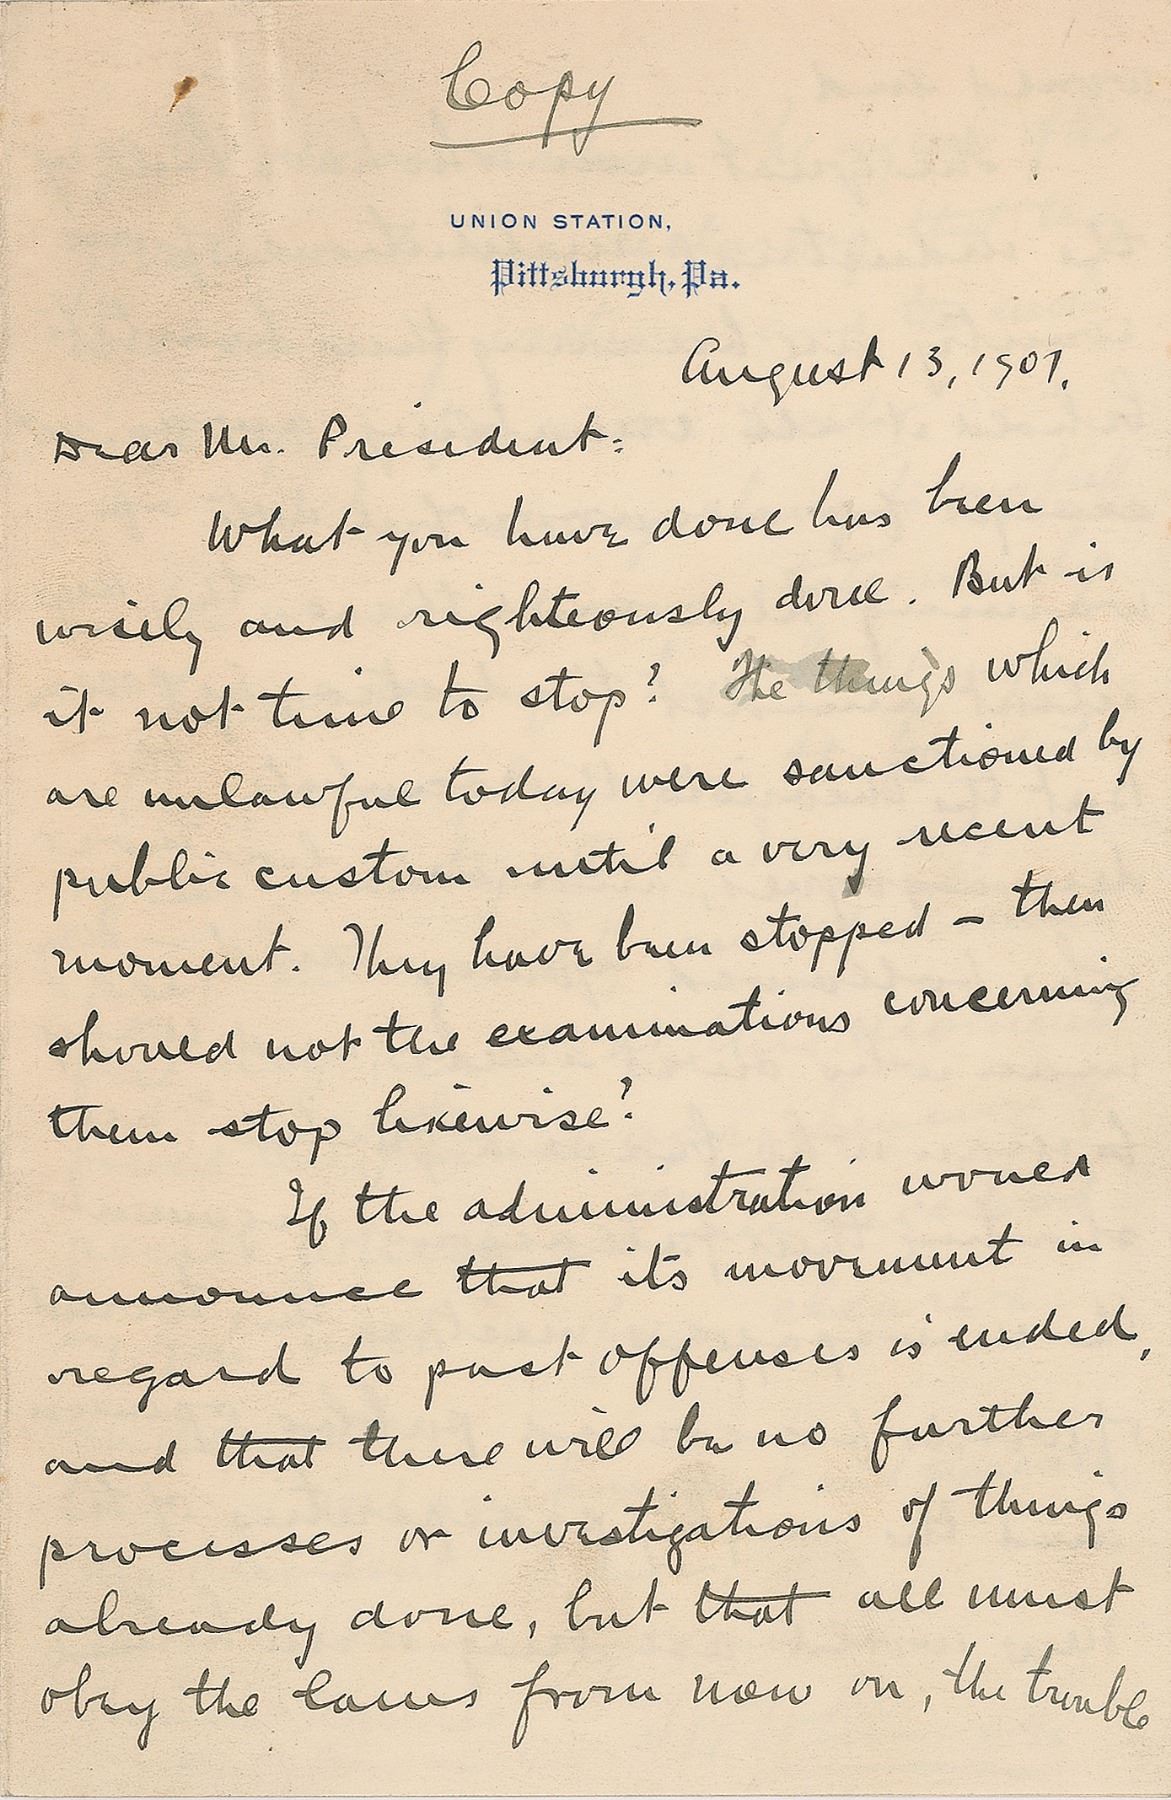 Copy
UNION STATION,
Pittsburgh, Pa.
August 13, 1907.
Dear Mr. President:
What you have done has been
wisely and righteously done. But is
it not time to stop? The things which
are unlawful today were sanctioned by
public custom until a very recent
moment. They have been stopped – then
should not the examinations concerning
them stop likewise?
If the administration would
announce that its movement in
regard to past offenses is ended,
and that there will be no further
processes or investigations of things
already done, but that all must
obey the laws from now on, the trouble